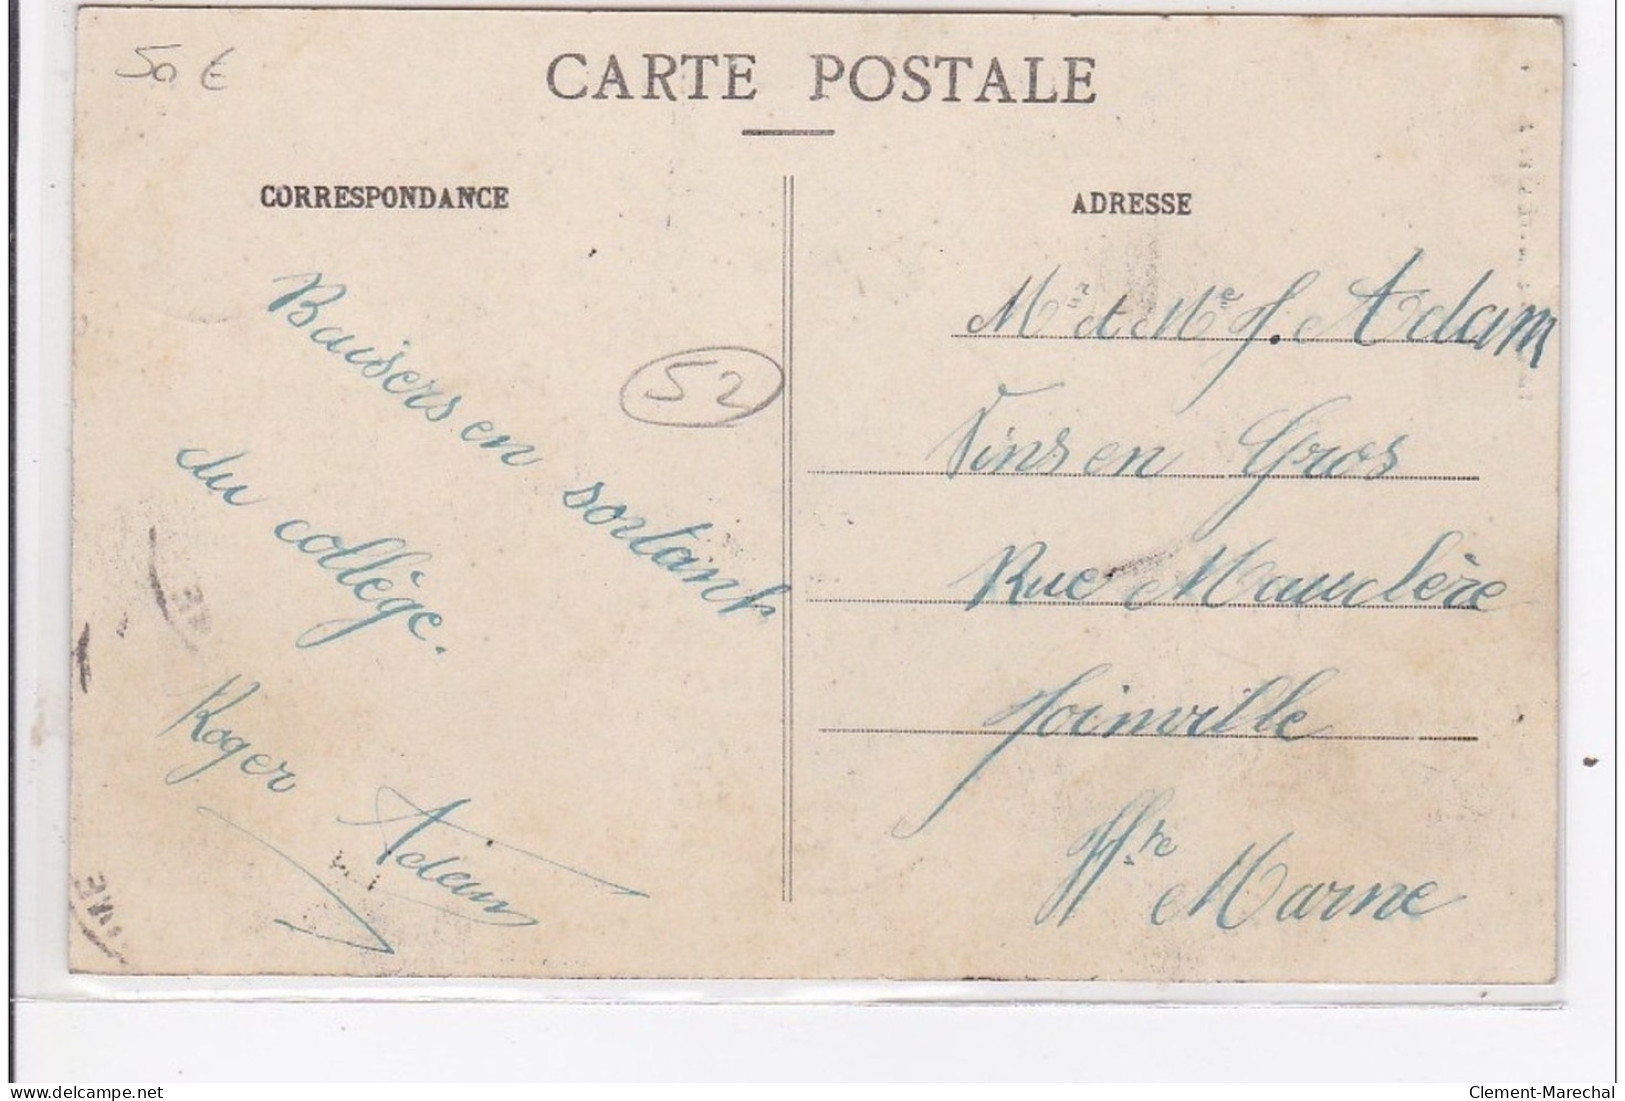 50 €
CARTE POSTALE
CORRESPONDANCE
Baisers en sortant
du collège.
Roger Adam
52
ADRESSE
Mr et Me J. Adam
Vins en Gros
Rue Mauclère
Joinville
Hte Marne
delcampe.net
Clement-Marechal